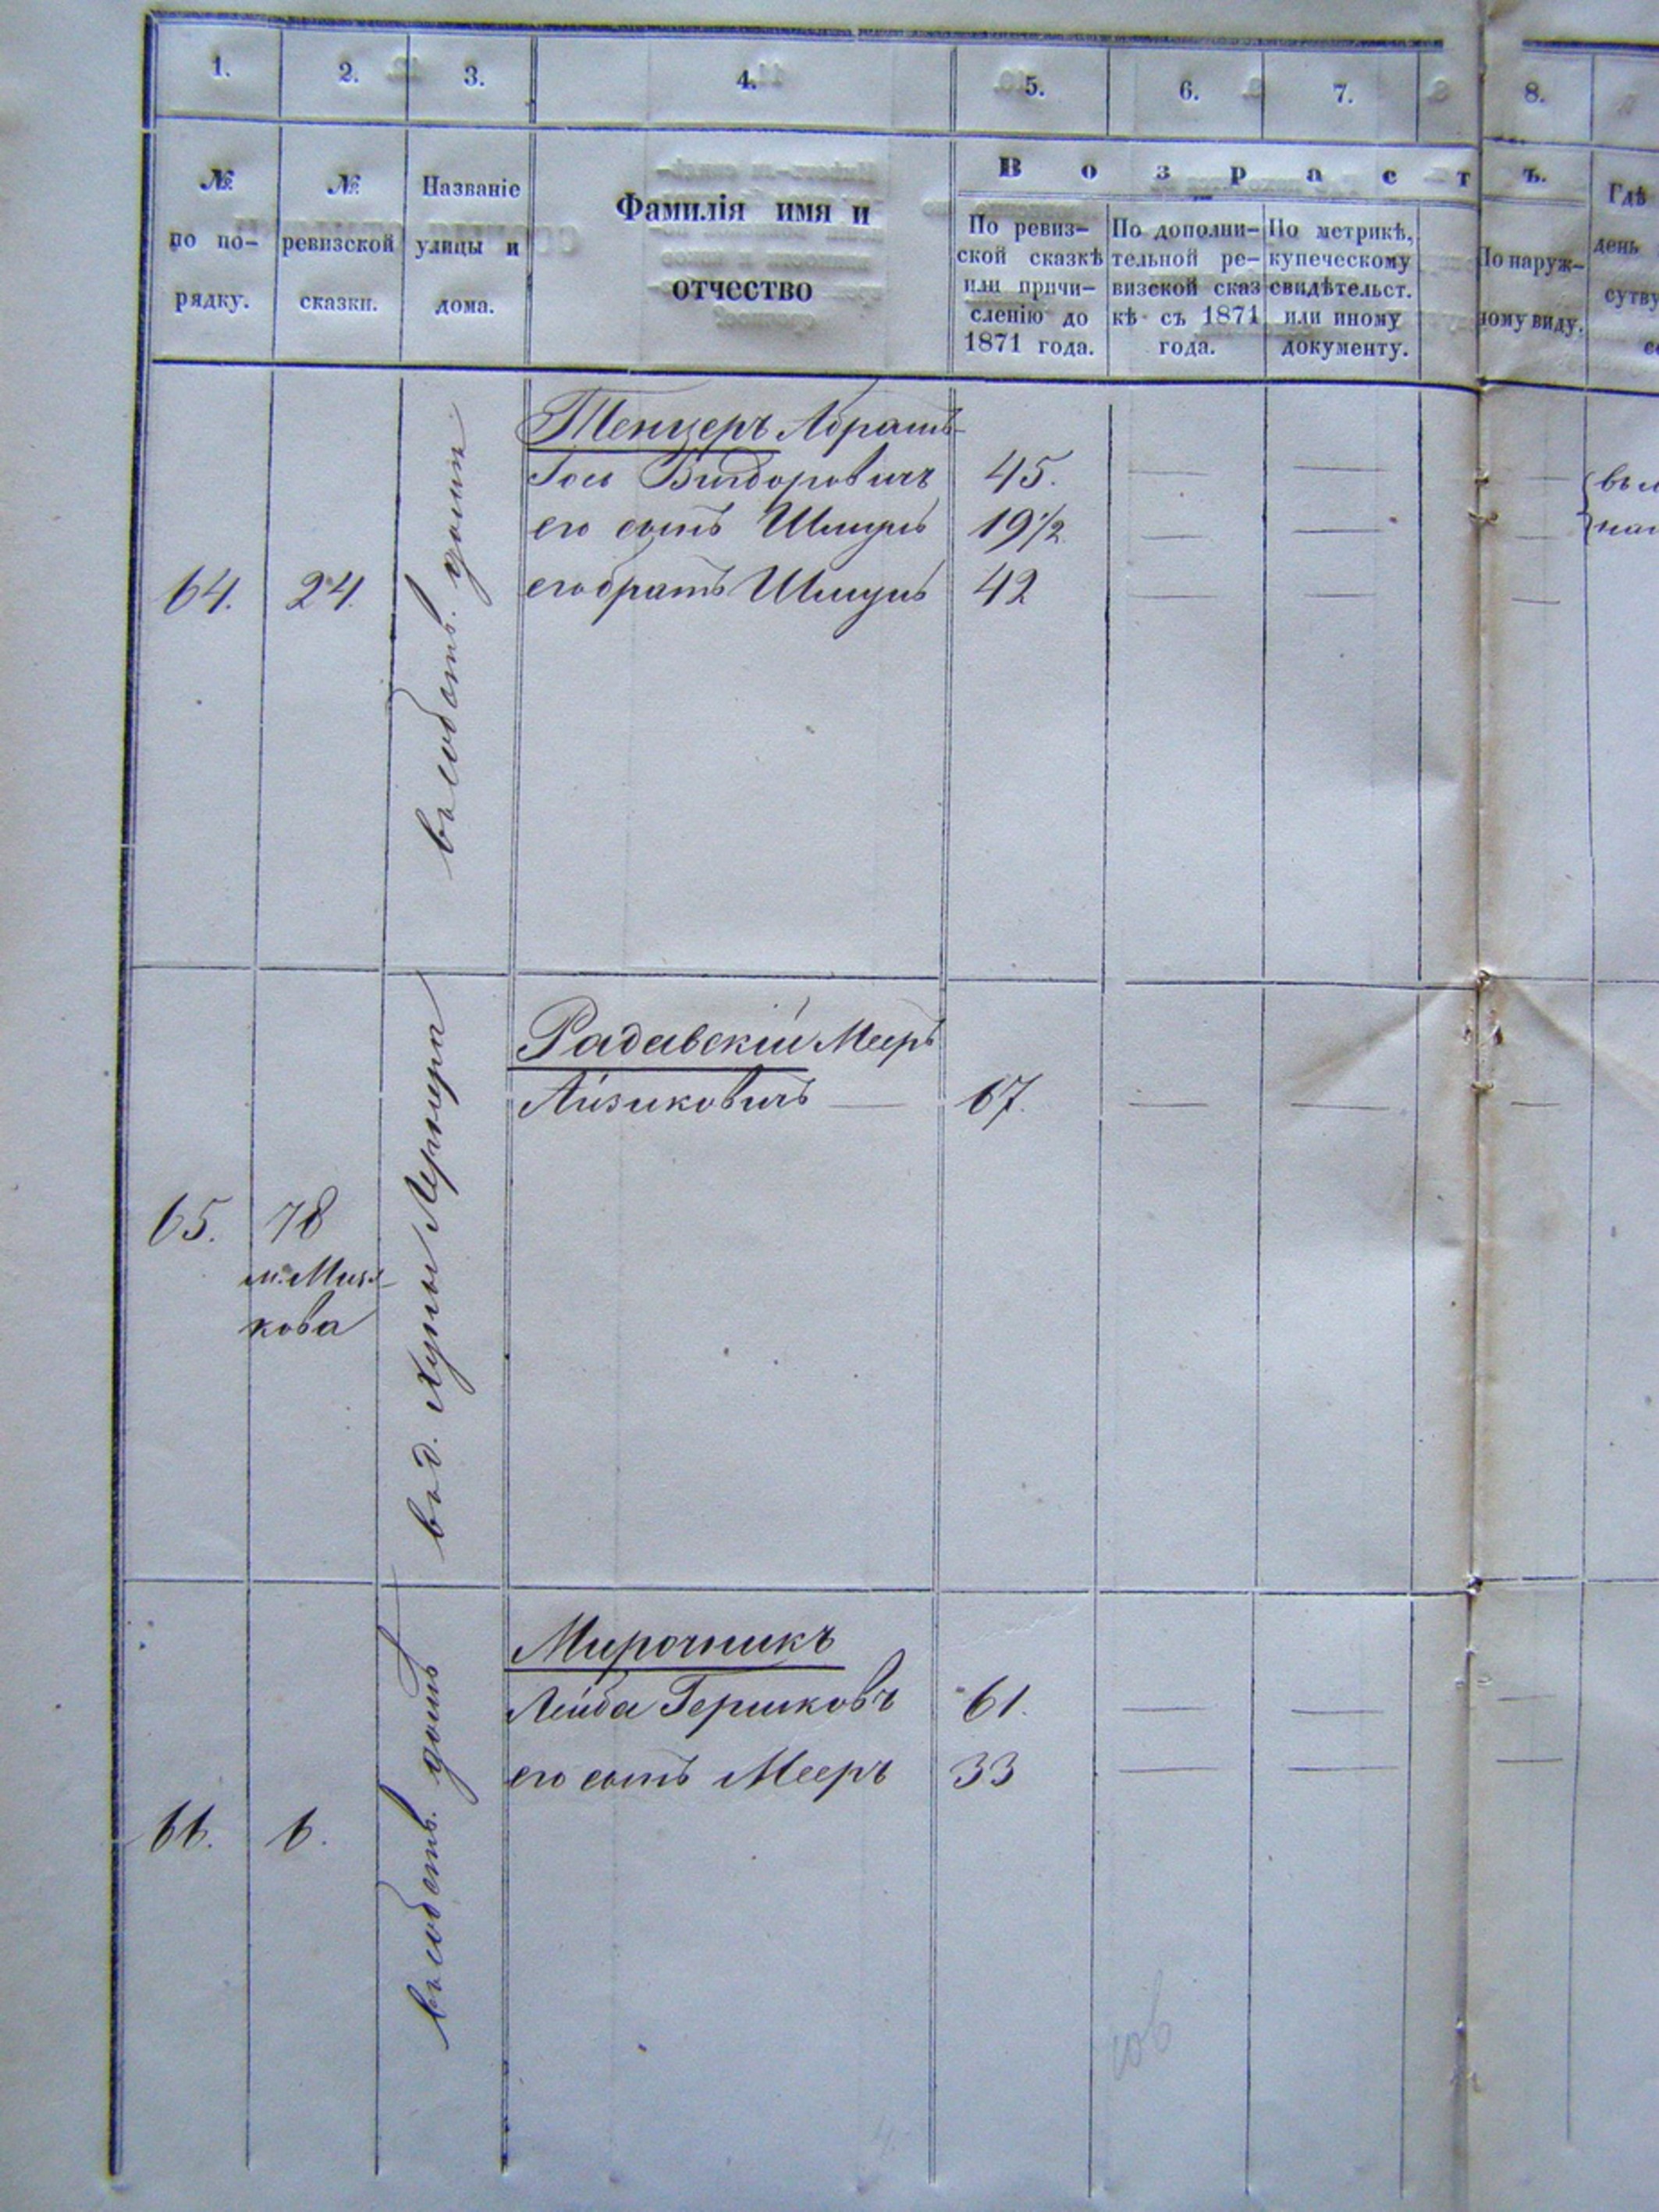 1. 2. 3. 4. 5. 6. 7. 8.
№
по по-
рядку.
№
ревизской
сказки.
Названіе
улицы и
дома.
Фамилія имя и
отчество
Возрастъ.
По ревиз-
ской сказкѣ
или причи-
сленію до
1871 года.
По дополни-
тельной ре-
визской сказ
кѣ съ 1871
года.
По метрикѣ,
купеческому
свидѣтельст.
или иному
документу.
По наруж-
ному виду.
Гдѣ
день
сутву
64. 24.
въ собств. домѣ
Тенцеръ Абрамъ
Іось Вигдоровичъ 45. — — —
его сынъ Шмуль 19½ — — —
его братъ Шмуль 42 — — —
65. 78
м. Миль-
кова
въ д. Хуны Лернера
Радавскій Мееръ
Айзиковичъ — 67. — — —
66. 6.
въ собств. домѣ
Мирочникъ
Лейба Гершковъ 61. — — —
его сынъ Мееръ 33 — — —